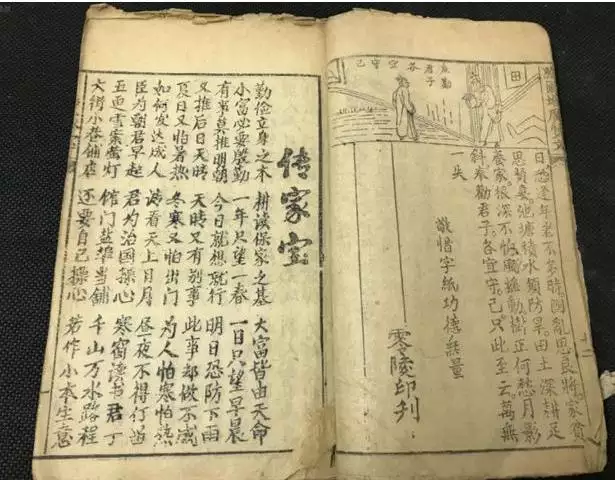 君子各宜守己
日愁逢年老不多時。國亂思良將。家貧
思賢妻。池塘積水須防旱。田土深耕足
養家。根深不怕風搖動。樹正何愁月影
斜。奉勸君子。各宜守己。只此呈云。萬無
一失
敬惜字紙功德無量
零陵印刊
传家宝
勤俭立身之本 耕读保家之基 大富皆由天命
小富必要殷勤 一年只望一春 一日只望早晨
有事莫推明朝 今日就想就行 明日恐防下雨
又推后日天時 天時又有别事 此事却做不成
夏日又怕暑热 冬寒又怕出门 为人怕寒怕热
如何发达成人 请看天上日月 昼夜不得仃当
臣为朝君早起 君为治国操心 寒窗读书君丁
五更雪案萤灯 馆门盐埠当铺 千山万水路程
大街小巷铺店 还要自己操心 若作小本生意